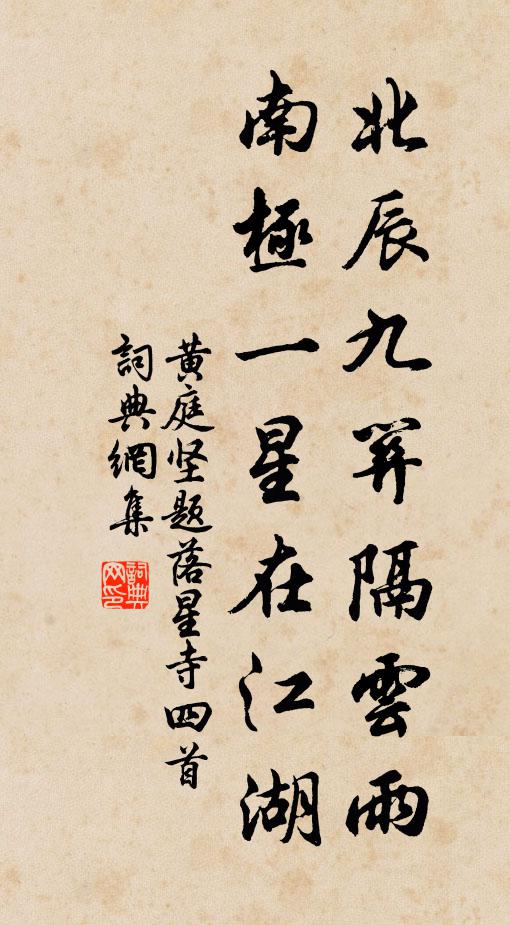 北辰九關隔雲雨
南極一星在江湖
黄庭坚题落星寺四首
詞典網集
詞典
网印